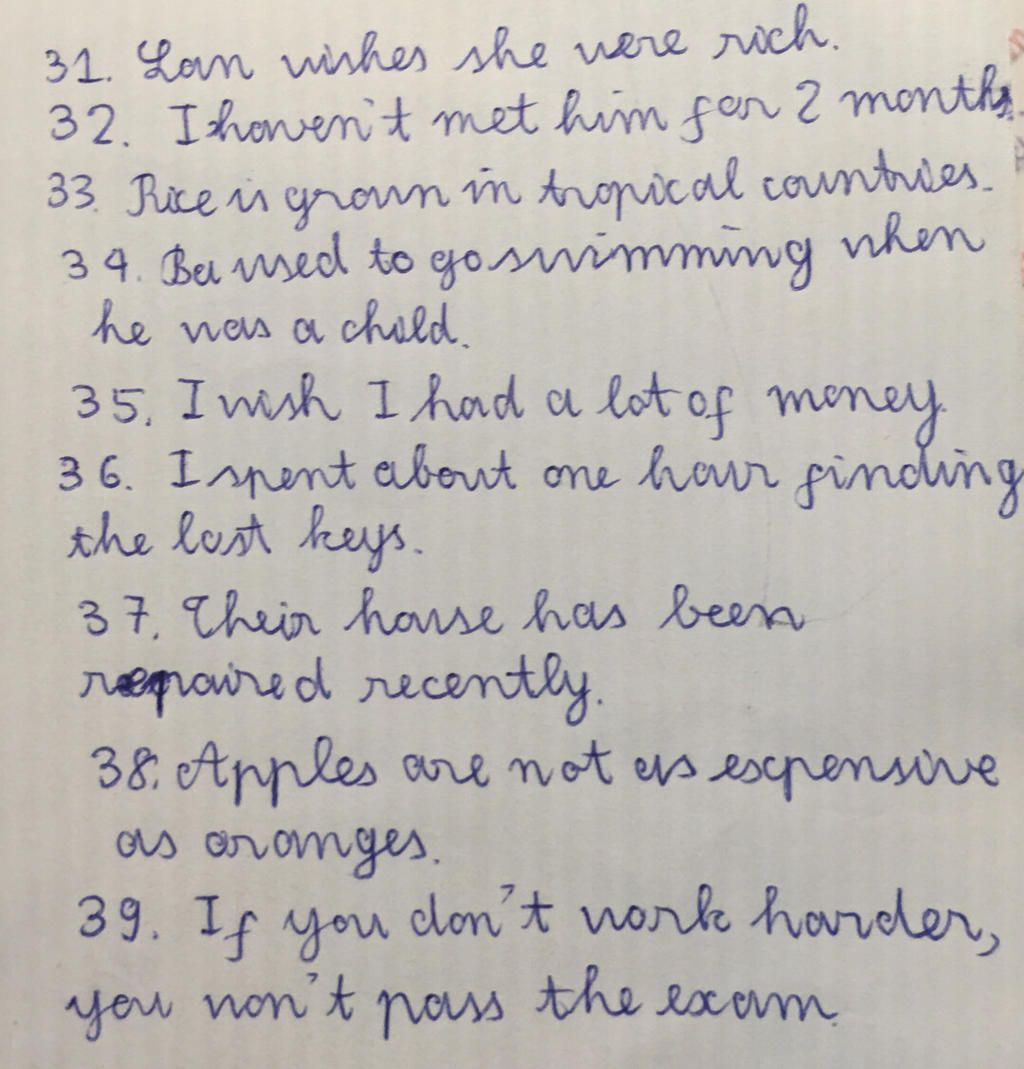 31. Lan wishes she were rich.
32. I haven't met him for 2 months.
33. Rice is grown in tropical countries.
34. Ba used to go swimming when
he was a child.
35. I wish I had a lot of money.
36. I spent about one hour finding
the lost keys.
37. Their house has been
repaired recently.
38. Apples are not as expensive
as oranges.
39. If you don't work harder,
you won't pass the exam.